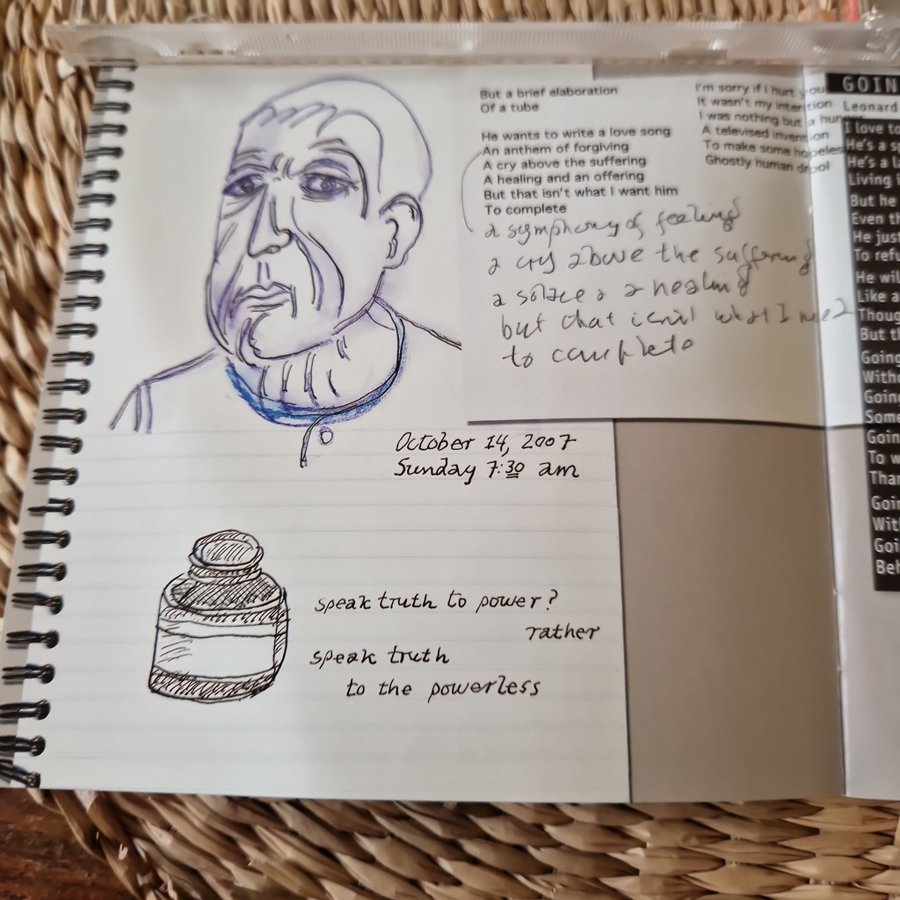 But a brief elaboration
Of a tube
He wants to write a love song
An anthem of forgiving
A cry above the suffering
A healing and an offering
But that isn't what I want him
To complete
a symphony of feeling
a cry above the suffering
a solace & a healing
but that isnt what I
to complete
I'm sorry if I hurt you
It wasn't my intention
I was nothing but a hunger
A televised invention
To make some hopeless
Ghostly human drool
October 14, 2007
Sunday 7:30 am
speak truth to power?
rather
speak truth
to the powerless
GOIN
Leonard
I love to
He's a sp
He's a la
Living i
But he
Even th
He just
To refu
He wil
Like a
Thoug
But th
Going
Witho
Going
Some
Goin
To w
Than
Goin
With
Goi
Beh